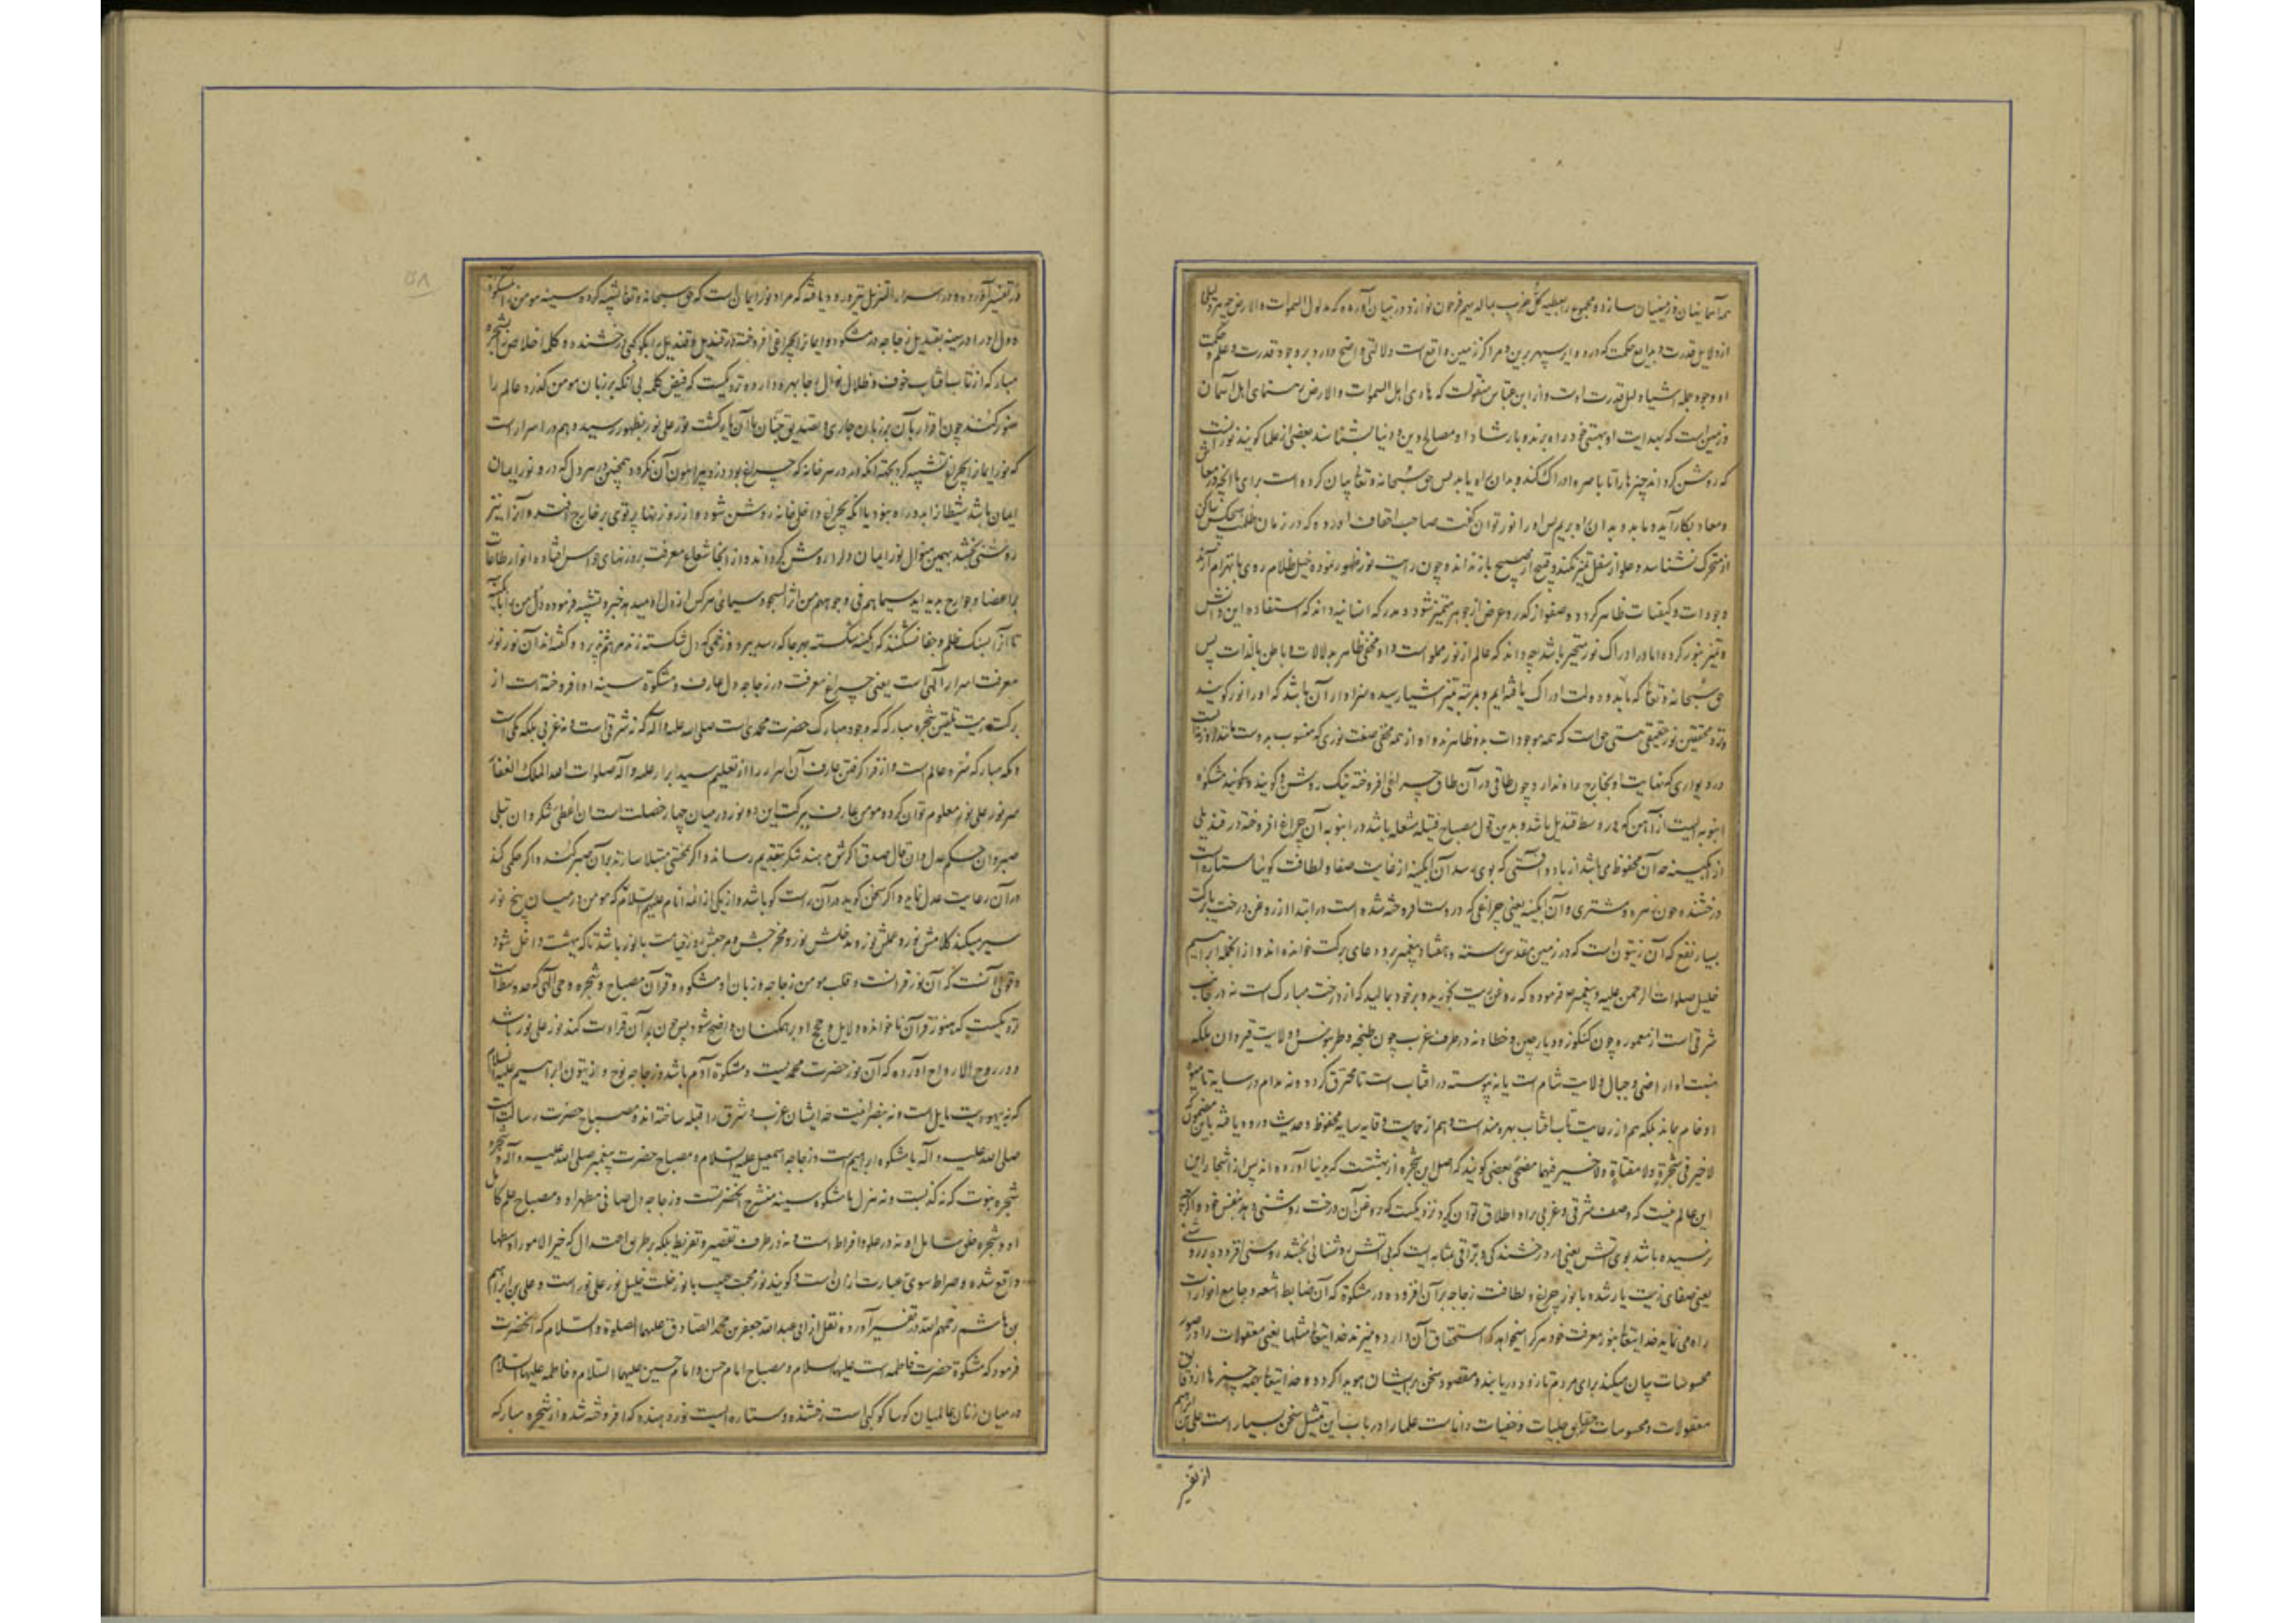 همه آسمانیان و زمینیان سازد و مجموع را بعطیه کل حزب بما لدیهم فرحون نوازد و در تبیان آورده که مدلول السموات والارض
از دلایل قدرت و بدایع حکمت که در دوایر سپهر برین و مراکز زمین واقع است دلالتی واضح دارد بر وجود قدرت و علم و حکمت
او وجود جمله اشیا دلیل قدرت اوست و از ابن عباس منقولست که هادی اهل السموات والارض رهنمای اهل آسمان
و زمین است که بهدایت او بهستی خود راه برند و بارشاد او مصالح دین و دنیا بشناسند بعضی از علما گویند نور آنست
که روشن گرداند چیزها را تا باصره ادراک کند و بدان راه یابد پس حق سبحانه و تعالی بیان کرده است برای ما آنچه در معاش
و معاد بکار آید و ما بدو بدان راه بریم پس او را نور توان گفت صاحب اتحاف آورده که در زمان ظلمت هیچکس ساکن
از متحرک نشناسد و علو از سفل تمیز نکند و قبیح از صبیح باز نداند و چون رایت نور ظهور نموده خیل ظلام روی بانهزام آرند
وجودات و کیفیات ظاهر گردد و صفو از کدر و عرض از جوهر متمیز شود و مدرکه انسانیه داند که استفاده این دانش
و تمیز بنور کرده اما در ادراک نور متحیر باشد چه داند که عالم از نور مملو است و او مخفی ظاهر بدلالات و باطن بالذات پس
حق سبحانه و تعالی که ما بدو دولت ادراک یافته ایم و بمرتبه تمیز اشیا رسیده سزاوار آن باشد که او را نور گویند
و نزد محققین نور حقیقی هستی حق است که همه موجودات بدو ظاهرند و او از همه مخفی صفت نوری که منسوب بدوست مانند
در دیواری که نهایت او بخارج راه ندارد چون طاقی در آن طاق چراغی افروخته نیک روشن و گویند مشکوة
انبوبه ایست از آهن که در وسط قندیل باشد و بدین قول مصباح فتیله شعله باشد در انبوبه آن چراغ افروخته در قندیلی
از آبگینه که آن محفوظ می باشد از باد و آفتی که بوی رسد آن آبگینه از غایت صفا و لطافت گوییا ستاره است
درخشنده چون زهره و مشتری و آن آبگینه یعنی چراغی که در وست افروخته شده است در ابتدا از روغن درخت با برکت
بسیار نفع که آن زیتون است که در زمین مقدس رسته و هفتاد پیغمبر برو دعای برکت خوانده اند و از آنجمله ابراهیم
خلیل صلوات الرحمن علیه و پیغمبر فرموده که روغن زیت بخورید و بر خود بمالید که از درخت مبارک است نه در جانب
شرقی است از معموره چون کنکدز و دیار چین و خطا و نه در طرف غرب چون طنجه و طرابلس و ولایت قیروان بلکه
منبت او اراضی و جبال ولایت شام است یا نه پیوسته در آفتاب است تا محترق گردد و نه مدام در سایه تا میوه
او خام بماند بلکه هم از رعایت تاب آفتاب بهره مند است و هم از حمایت وقایه سایه محفوظ و حدیث ورود یافته باین مضمون که
لا خیر فی شجرة ولا مقناة ولا خیر فیهما مضحی بعضی گویند که اصل این شجره از بهشتست که بدنیا آورده اند پس از اشجار این
این عالم نیست که وصف شرقی و غربی براو اطلاق توان کرد نزدیکست که روغن آن درخت روشنی دهد بنفس خود و اگرچه
نرسیده باشد بوی آتش یعنی در درخشندگی و براقی بمثابه ایست که بی آتش روشنائی بخشد روشنی افزوده بر روشنی
یعنی صفای زیت یار شده با نور چراغ و لطافت زجاجه بر آن افزوده در مشکوة که آن ضابط اشعه و جامع انوار است
راه می نماید خدایتعالی بنور معرفت خود هر که را میخواهد که استحقاق آن دارد و میزند خدایتعالی مثلها یعنی معقولات را در صور
محسوسات بیان میکند برای مردم تا زود دریابند و مقصود سخن بر ایشان هویدا گردد و خدایتعالی بهمه چیزها از دقایق
معقولات و محسوسات و حقایق جلیات و خفیات داناست علما را در باب این تمثیل سخن بسیار است علی بن ابراهیم
از تفسیر
در تفسیر آورده و در اسرار التنزیل نیز ورود یافته که مراد نور ایمان است که حق سبحانه و تعالی تشبیه کرده سینه مومن را بمشکوة
و دل او را در سینه بقندیل زجاجه در مشکوة و ایمان را بچراغی افروخته در قندیل و قندیل را بکوکبی درخشنده و کلمه اخلاص را بشجره
مبارکه از تاب آفتاب خوف و ظلال نوال رجا بهره دارد و نزدیکست که فیض کلمه بی آنکه بر زبان مومن گذرد عالم را
منور کند چون اقرار بآن بر زبان جاری و تصدیق جنان با آن یار گشت نور علی نور بظهور رسید و هم در اسرار است
که نور ایمان را بچراغ تشبیه کرد بجهت آنکه در هر خانه که چراغ بود دزد پیرامون آن نگردد همچنین هر دل که درو نور ایمان
ایمان باشد شیطان را بدو راه نبود یا آنکه بچراغ داخل خانه روشن شود و از روزنها پرتوی بر خارج افتد و آنرا نیز
روشنی بخشد بهمین منوال نور ایمان دل را روشن گرداند و از آنجا شعاع معرفت بروزنهای حواس افتاده انوار طاعات
بر اعضا و جوارح پدید آید سیماهم فی وجوههم من اثر السجود سیمای هرکس از دل او میدهد خبر و تشبیه فرموده دل مومن را بآبگینه
تا آنرا بسنگ ظلم و جفا نشکنند که آبگینه شکسته بهر جا که رسد ببرد و زخمی که دل شکسته زند مرهم نپذیرد و گفته اند آن نور نور
معرفت اسرار الهی است یعنی چراغ معرفت در زجاجه دل عارف و مشکوة سینه او افروخته است از
برکت زیت تلقین شجره مبارکه که وجود مبارک حضرت محمدی است صلی الله علیه و آله که نه شرقی است و نه غربی بلکه مکی است
و مکه مبارکه سره عالم است و از فرا گرفتن عارف آن اسرار را از تعلیم سید ابرار علیه و آله صلوات الله الملک الغفار
سر نور علی نور معلوم توان کرد و مومن عارف ببرکت این دو نور در میان چهار خصلت است ان اعطی شکر و ان ابتلی
صبر و ان حکم عدل و ان قال صدق اگرش دهند شکر بتقدیم رساند و اگر بمحنتی مبتلا سازند بر آن صبر کند و اگر حکمی کند
در آن رعایت عدل نماید و اگر سخن گوید در آن راست گو باشد و از یکی از ائمه انام علیهم السلام که مومن در میان پنج نور
سیر میکند کلامش نور و عملش نور و مدخلش نور و مخرجش و مرجعش روز قیامت با نور باشد تا که ببهشت داخل شود
و قولی آنست که آن نور قرآنست و قلب مومن زجاجه و زبان او مشکوة و قرآن مصباح و شجره وحی الهی که حد وسط است
نزدیکست که هنوز قرآن ناخوانده دلایل و حجج او بر همکنان واضح شود پس چون بر آن قراءت کند نور علی نور باشد
و در روح الارواح آورده که آن نور حضرت محمدیست و مشکوة آدم باشد و زجاجه نوح و زیتون ابراهیم علیه السلام
که نه یهودیت مایل است و نه بنصرانیت که ایشان غرب و شرق را قبله ساخته اند و مصباح حضرت رسالت است
صلی الله علیه و آله یا مشکوة ابراهیم است و زجاجه اسمعیل علیه السلام و مصباح حضرت پیغمبر صلی الله علیه و آله و شجره
شجره نبوت که نه کذبست و نه هزل یا مشکوة سینه منشرح آنحضرتست و زجاجه دل صافی مطهر او و مصباح علم کامل
او و شجره خلق شامل او نه در علو و افراط است و نه در طرف تقصیر و تفریط بلکه بر طریق اعتدال که خیر الامور اوسطها
واقع شده و صراط سوی عبارت از آن است و گویند نور محبت حبیب با نور خلت خلیل نور علی نور است و علی بن ابراهیم
بن هاشم رحمهم الله در تفسیر آورده نقل از ابی عبدالله جعفر بن محمد الصادق علیهما الصلوة والسلام که آنحضرت
فرمود که مشکوة حضرت فاطمه است علیها السلام و مصباح امام حسن و امام حسین علیهما السلام و فاطمه علیها السلام
در میان زنان عالمیان گوییا کوکبی است درخشنده و ستاره ایست نور دهنده که افروخته شده از شجره مبارکه